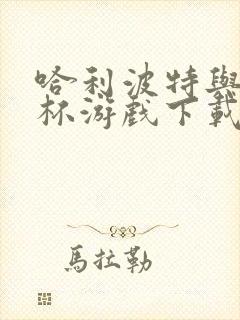 哈利波特與
杯游戲下載
馬拉勒